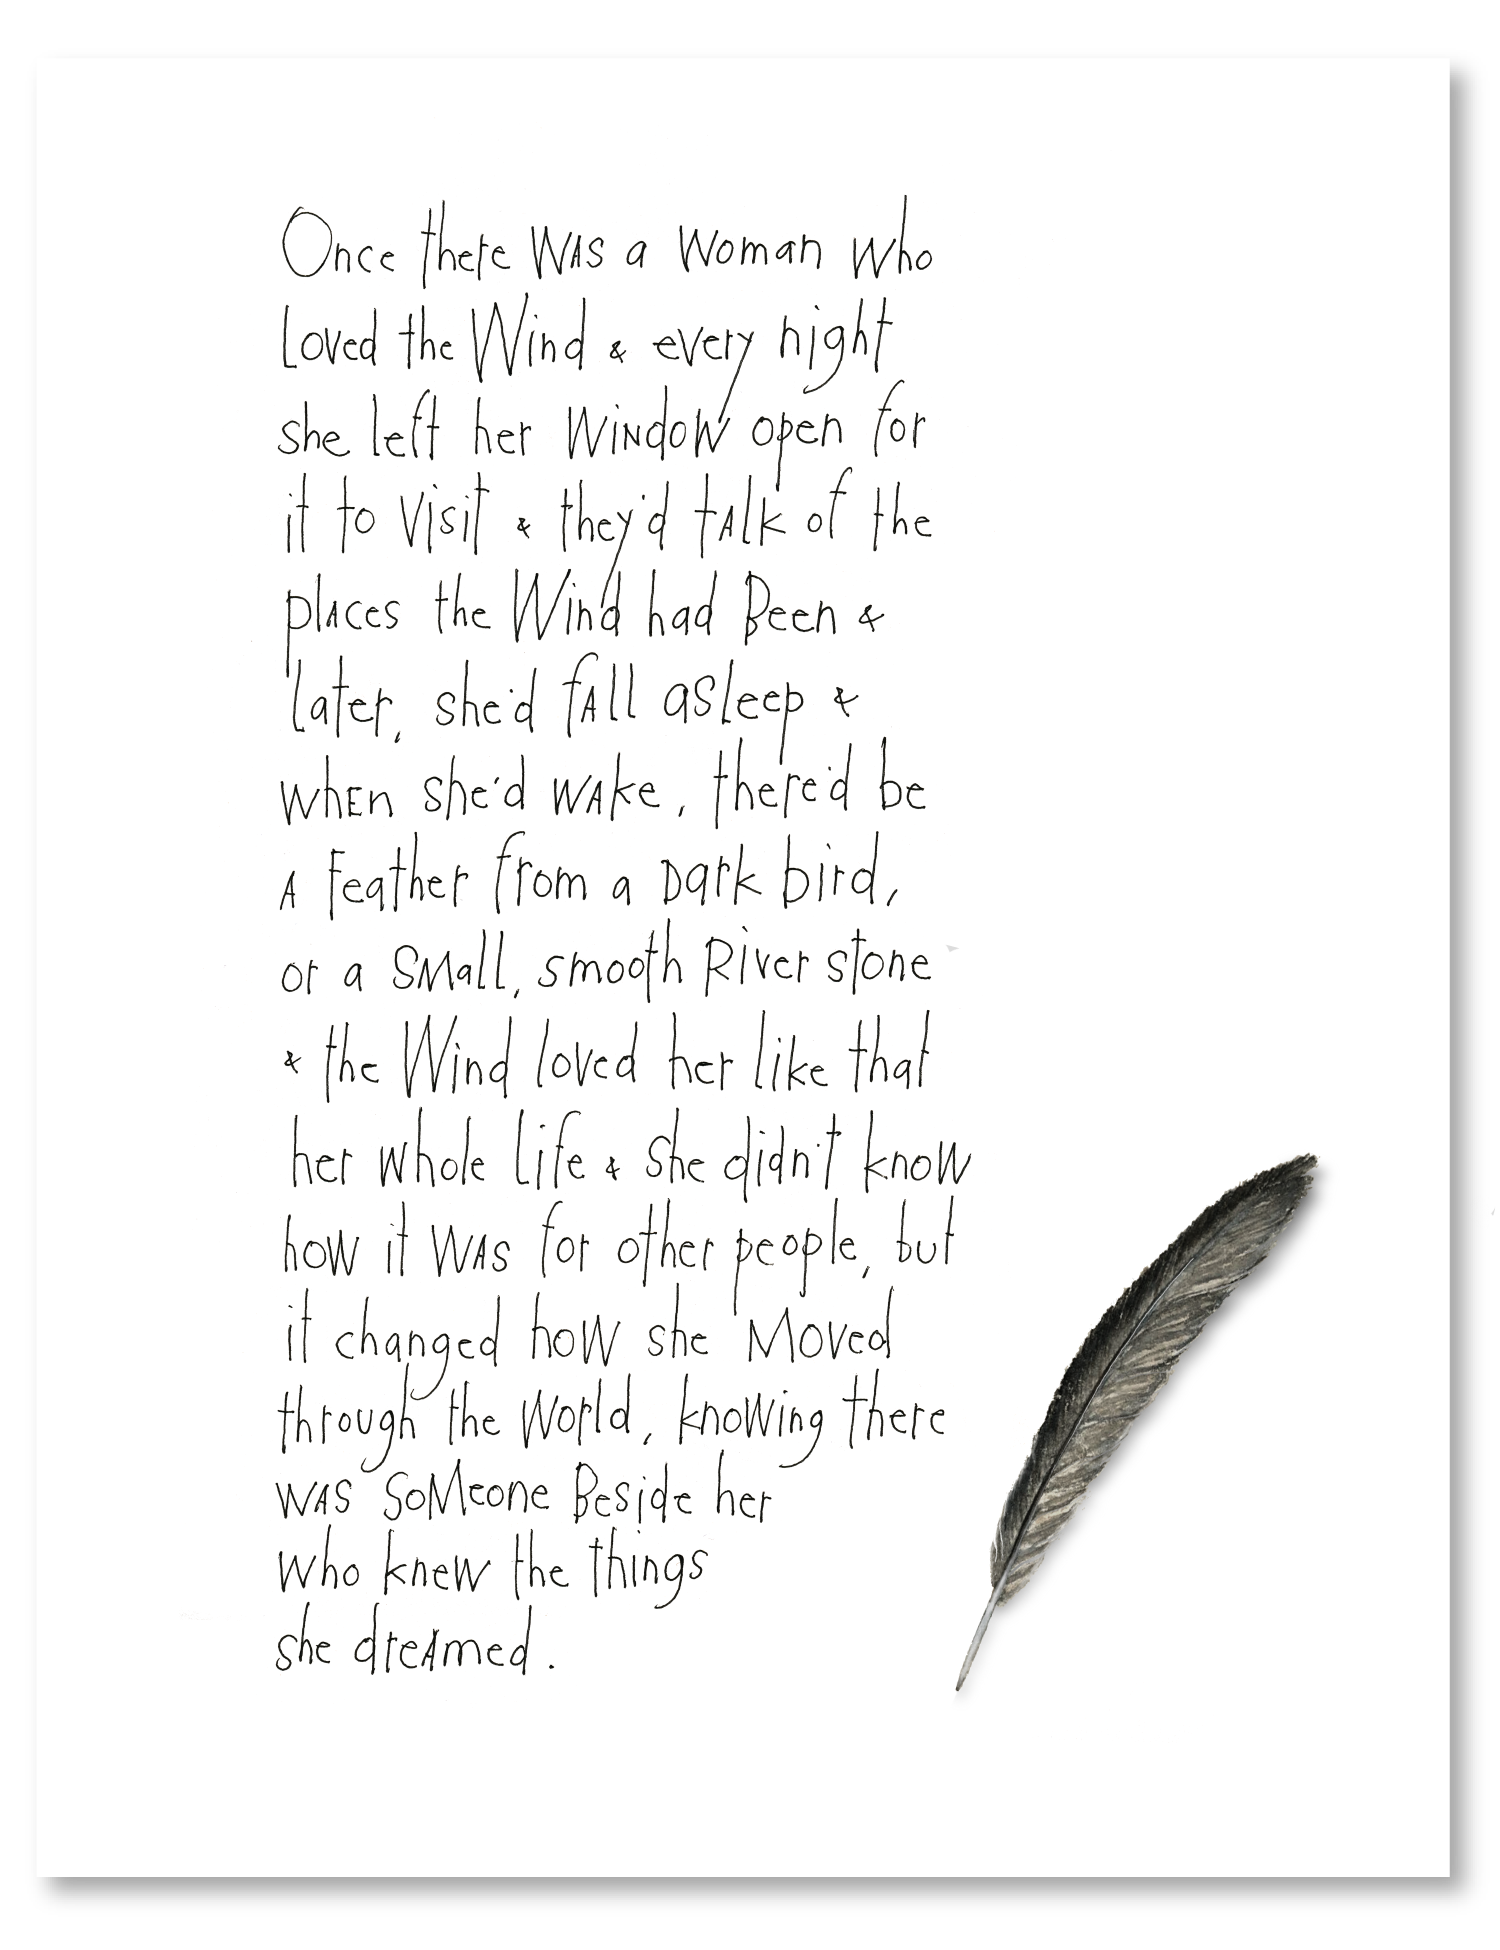 Once there WAS a Woman who
Loved the Wind & every night
she left her WiNdoW open for
it to Visit & they'd tAlk of the
plAces the Wind had Been &
later, she'd fAll asleep &
whEn she'd wAke, there'd be
A Feather from a Dark bird,
or a SMall, smooth River stone
& the Wind loved her like that
her whole life & she didn't knoW
hoW it WAS for other people, but
it changed hoW she Moved
through the World, knoWing there
WAS SoMeone Beside her
who kneW the things
she dreAmed.